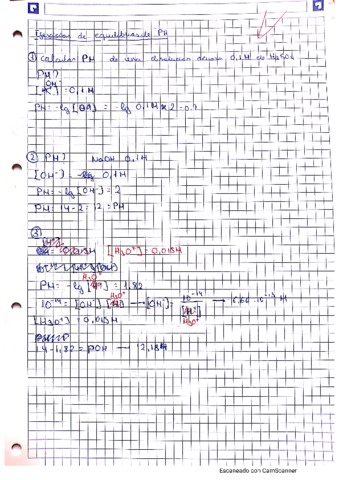 Ejercicios de equilibrios de PH
① calcular PH de una disolución acuosa 0,1M de H₂SO₄
PH?
= 0,1M
② PH? NaOH 0,1M
[OH⁻] 0,1M
PH = -lg [OH⁻] = 2
PH = 14-2 = 12 = PH
③
0,015M [H₃O⁺] = 0,015M
PH = -lg [H₃O⁺] = 1,82
10⁻¹⁴ = [OH⁻] [H₃O⁺] → [OH⁻] = 10⁻¹⁴ / [H₃O⁺] → 6,66·10⁻¹³ M
[H₃O⁺] = 0,015M
14-1,82 = pOH → 12,18
Escaneado con CamScanner